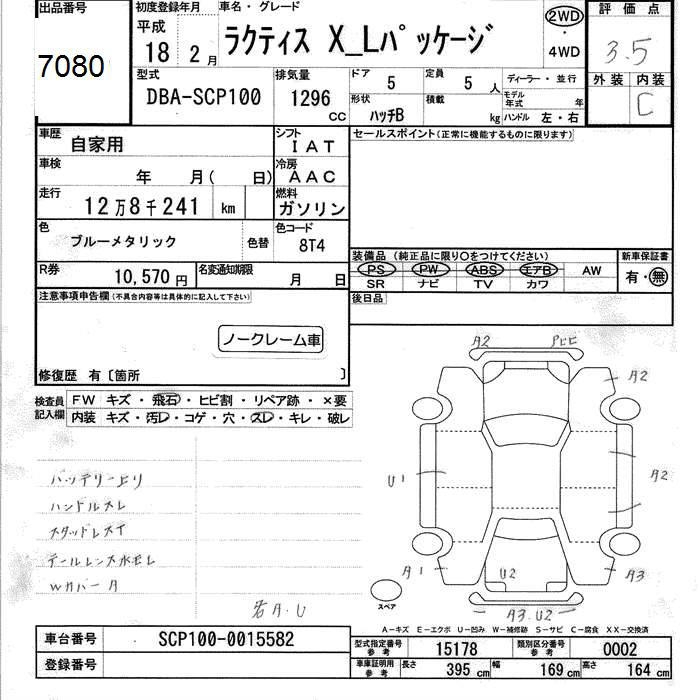 出品番号
7080
初度登録年月
平成
18 2 月
車名・グレード
ラクティス X_Lパッケージ
2WD
・
4WD
評価点
3.5
外装 内装
C
型式
DBA-SCP100
排気量
1296
CC
ドア
5
定員
5 人
形状
ハッチB
積載
kg
ディーラー・並行
モデル年式 年
ハンドル 左・右
車歴
自家用
シフト
IAT
車検
年 月( 日)
冷房
AAC
走行
12万8千241 km
燃料
ガソリン
色
ブルーメタリック
色替
色コード
8T4
R券
10,570円
名変通知期限
月 日
セールスポイント(正常に機能するものに限ります)
装備品 (純正品に限り○をつけてください)
PS PW ABS エアB AW
SR ナビ TV カワ
新車保証書
有・無
後日品
注意事項申告欄(不具合内容等は具体的に記入して下さい)
ノークレーム車
修復歴 有〔箇所 〕
検査員記入欄
FW キズ・飛石・ヒビ割・リペア跡・×要
内装 キズ・汚レ・コゲ・穴・スレ・キレ・破レ
バッテリー上り
ハンドルスレ
スタッドレスT
テールレンズ水モレ
Wカバー A
若A.U
A2
A2
U1
A2
A1
U2
A3
A3.U2
スペア
A-キズ E-エクボ U-凹み W-補修跡 S-サビ C-腐食 XX-交換済
車台番号
SCP100-0015582
登録番号
型式指定番号 参考
15178
類別区分番号 参考
0002
車庫証明用 参考
長さ 395 cm
幅 169 cm
高さ 164 cm